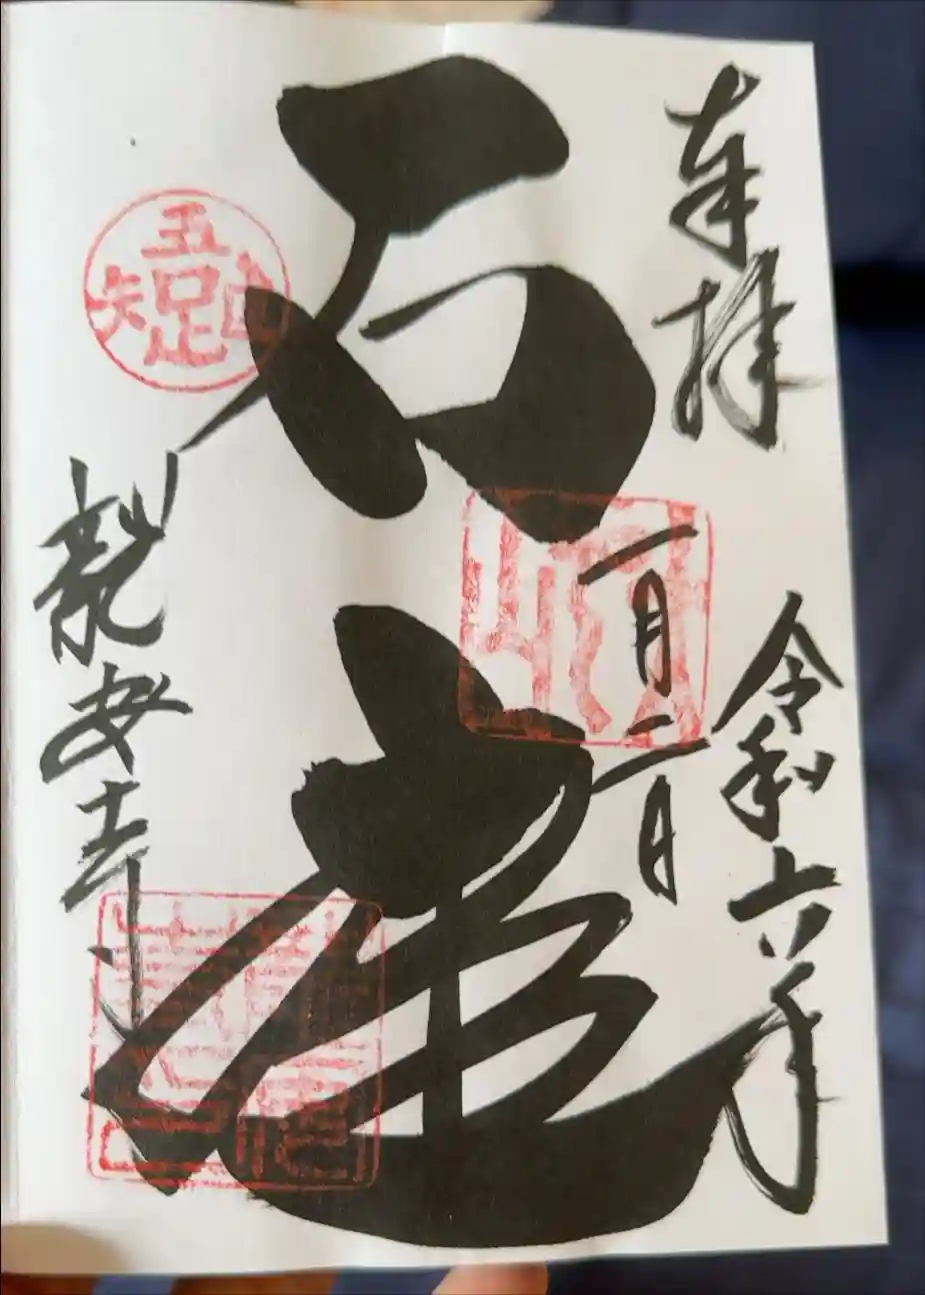 奉拝
令和六年
一月二日
石庭
吾唯足知
龍安寺